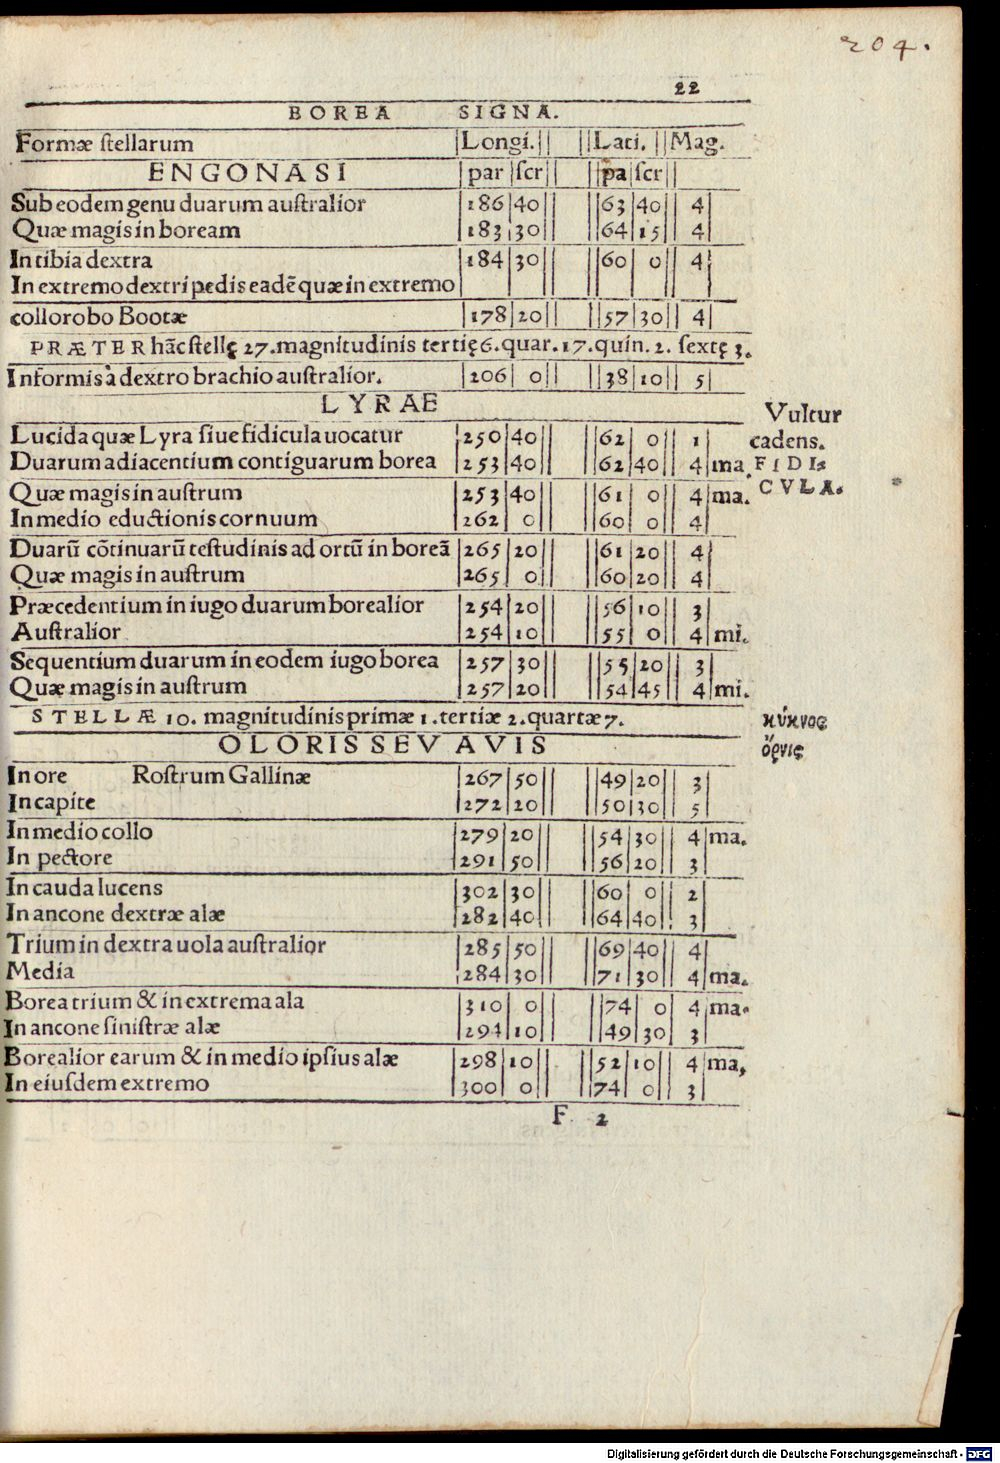 204.
22
BOREA SIGNA.
Formæ stellarum Longi. Lati. Mag.
ENGONASI par scr pa scr
Sub eodem genu duarum australior 186 40 63 40 4
Quæ magis in boream 183 30 64 15 4
In tibia dextra 184 30 60 0 4
In extremo dextri pedis eadē quæ in extremo
collorobo Bootæ 178 20 57 30 4
PRÆTER hāc stellę 27. magnitudinis tertię 6. quar. 17. quin. 2. sextę 3.
Informis à dextro brachio australior. 206 0 38 10 5
LYRAE
Vultur
Lucida quæ Lyra siue fidicula uocatur 250 40 62 0 1
cadens.
Duarum adiacentium contiguarum borea 253 40 62 40 4 ma.
FIDIs
Quæ magis in austrum 253 40 61 0 4 ma.
CVLA.
In medio eductionis cornuum 262 0 60 0 4
Duarū cōtinuarū testudinis ad ortū in boreā 265 20 61 20 4
Quæ magis in austrum 265 0 60 20 4
Præcedentium in iugo duarum borealior 254 20 56 10 3
Australior 254 10 55 0 4 mi.
Sequentium duarum in eodem iugo borea 257 30 55 20 3
Quæ magis in austrum 257 20 54 45 4 mi.
STELLÆ 10. magnitudinis primæ 1. tertiæ 2. quartæ 7.
κύκνος
OLORIS SEV AVIS
ὄρνις
In ore Rostrum Gallinæ 267 50 49 20 3
In capite 272 20 50 30 5
In medio collo 279 20 54 30 4 ma.
In pectore 291 50 56 20 3
In cauda lucens 302 30 60 0 2
In ancone dextræ alæ 282 40 64 40 3
Trium in dextra uola australior 285 50 69 40 4
Media 284 30 71 30 4 ma.
Borea trium & in extrema ala 310 0 74 0 4 ma.
In ancone sinistræ alæ 294 10 49 30 3
Borealior earum & in medio ipsius alæ 298 10 52 10 4 ma,
In eiusdem extremo 300 0 74 0 3
F 2
Digitalisierung gefördert durch die Deutsche Forschungsgemeinschaft - DFG